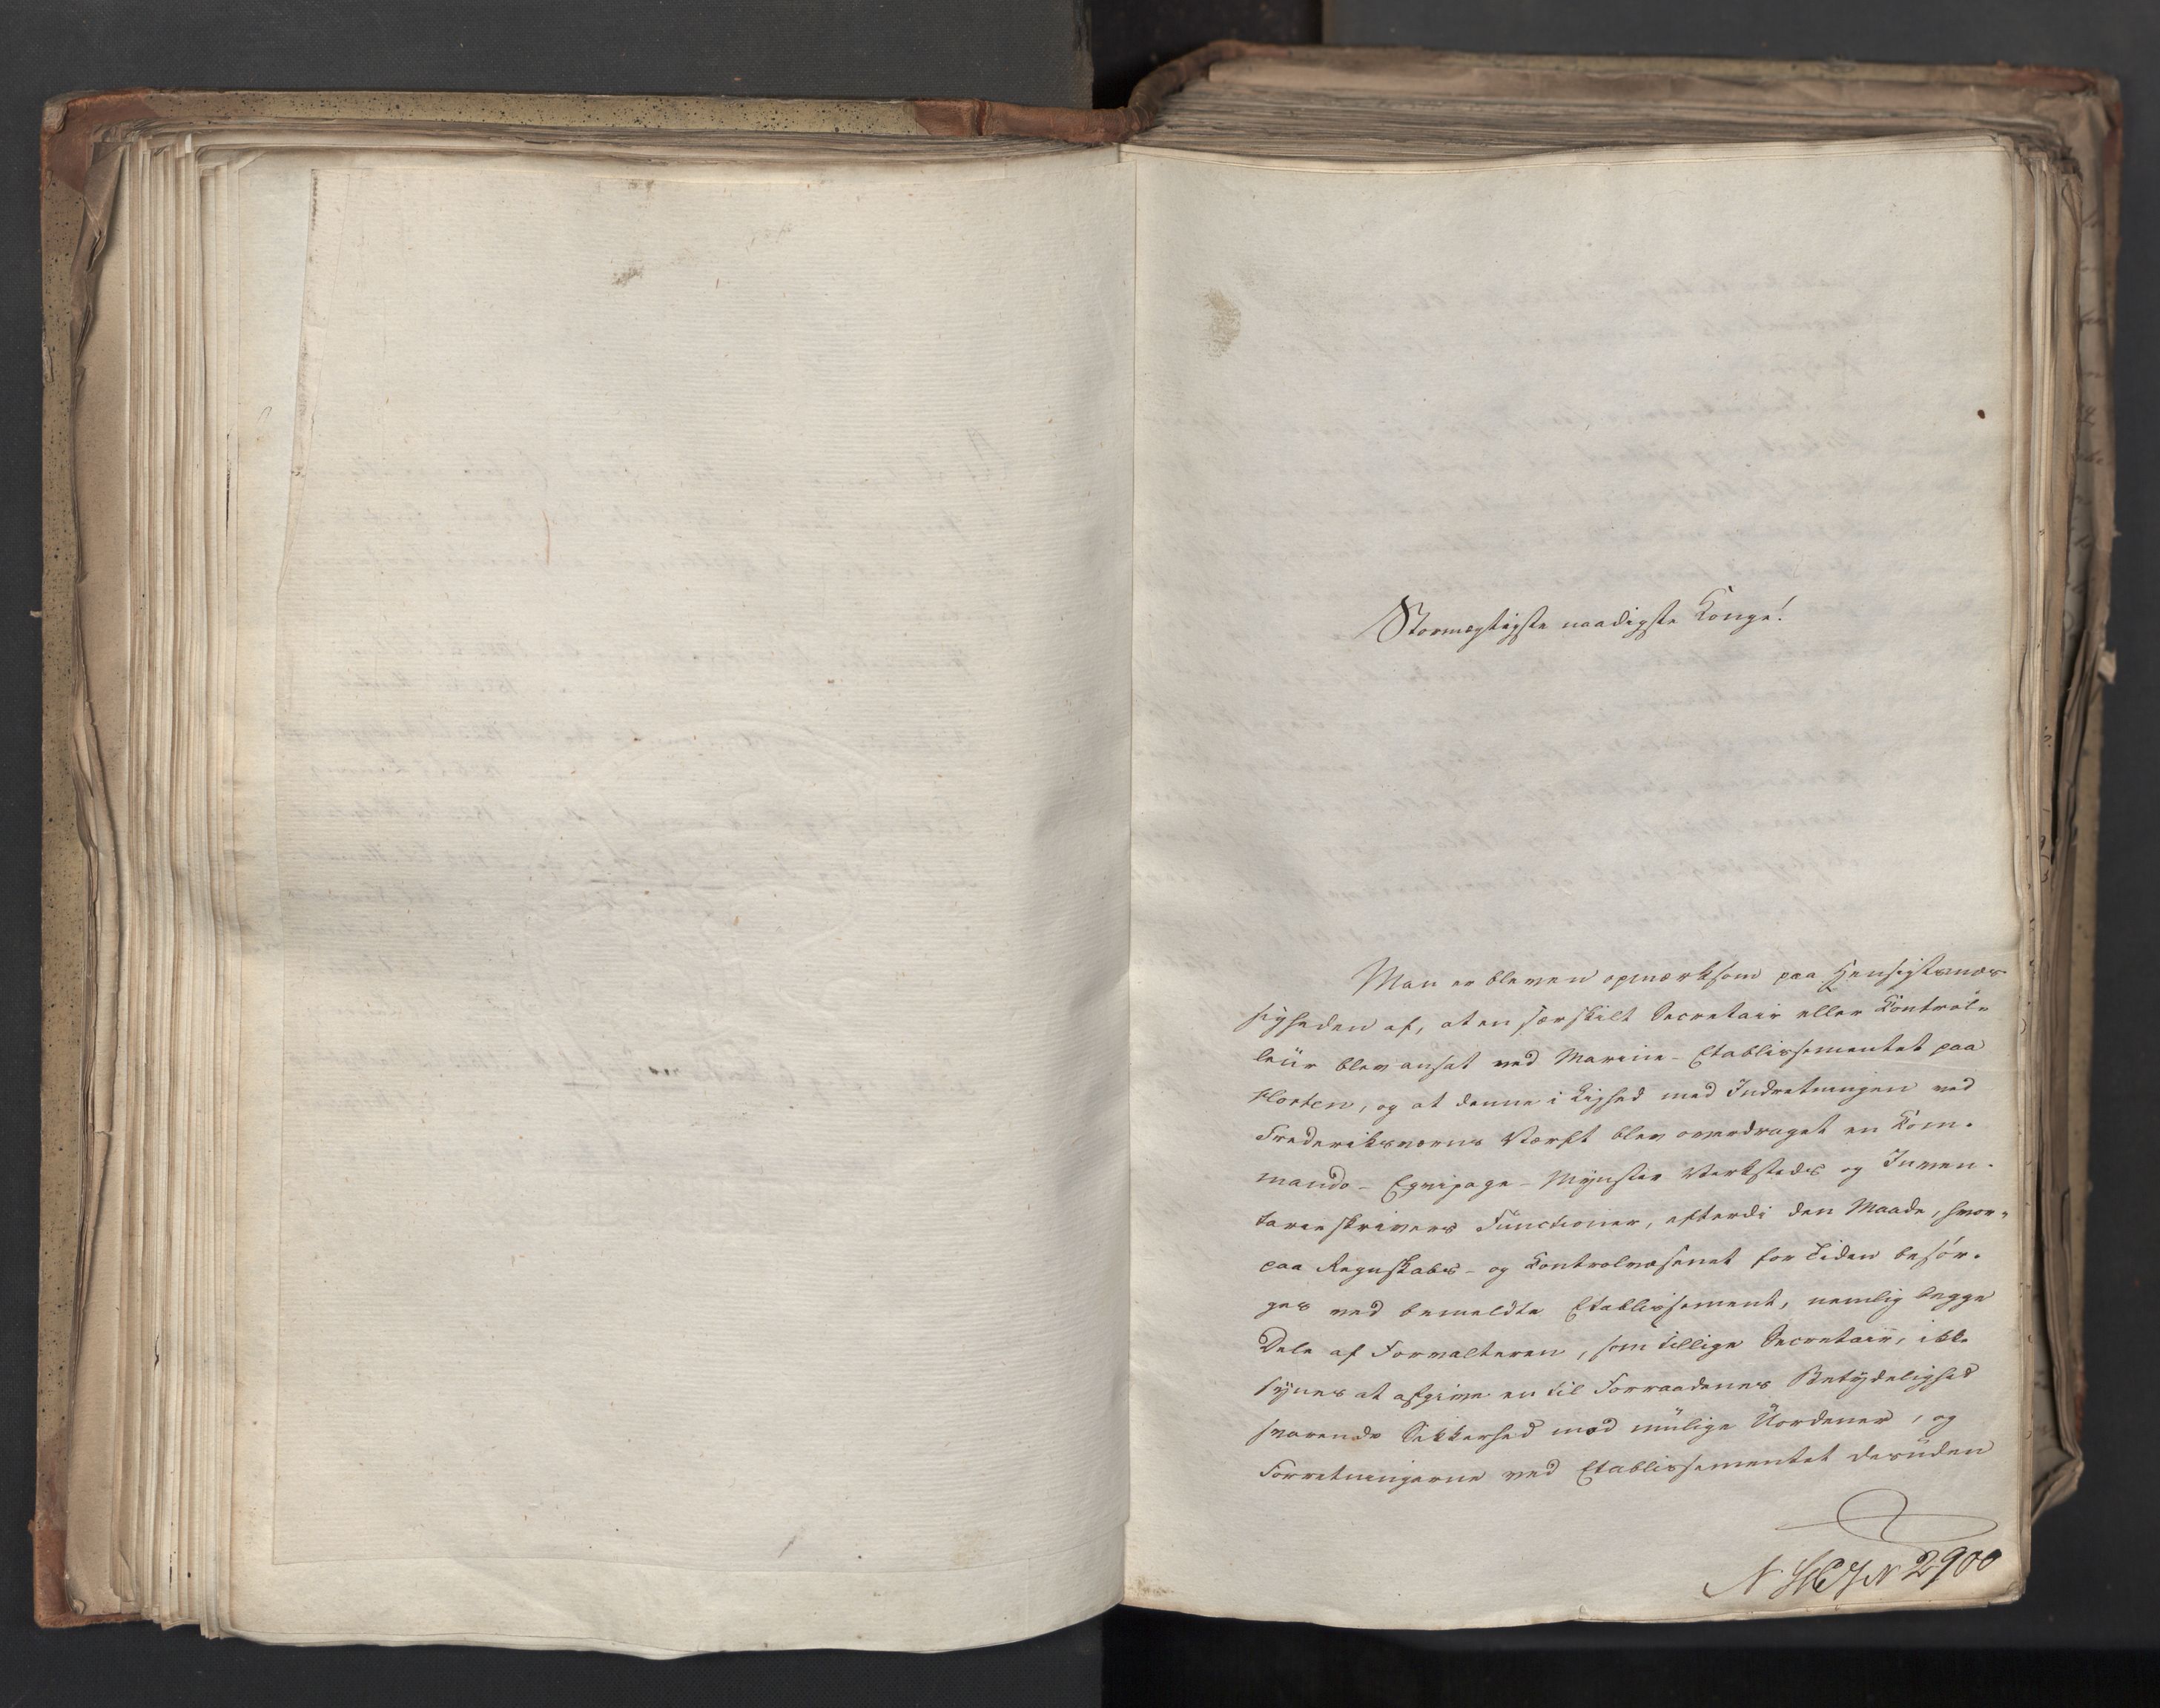 Stormægtigste naadigste Konge!
Man er bleven opmærksom paa Hensigtsmæs-
sigheden af, at en særskilt Secretair eller Kontrol-
leür blev ansat ved Marine-Etablissementet paa
Horten, og at denne i Lighed med Indretningen ved
Frederiksværns Værft blev overdraget en Kom-
mando- Eqvipage- Mynster Værksteds og Inven-
tarieskrivers Functioner, efterdi den Maade, hvor-
paa Regnskabs- og Kontrolvæsenet for Tiden besør-
ges ved bemeldte Etablissement, nemlig begge
Dele af Forvalteren, som tillige Secretair, ikke
synes at afgive en til Forraadenes Betydelighed
svarende Sikkerhed mod mulige Uordener, og
Forretningerne ved Etablissementet desuden
2900